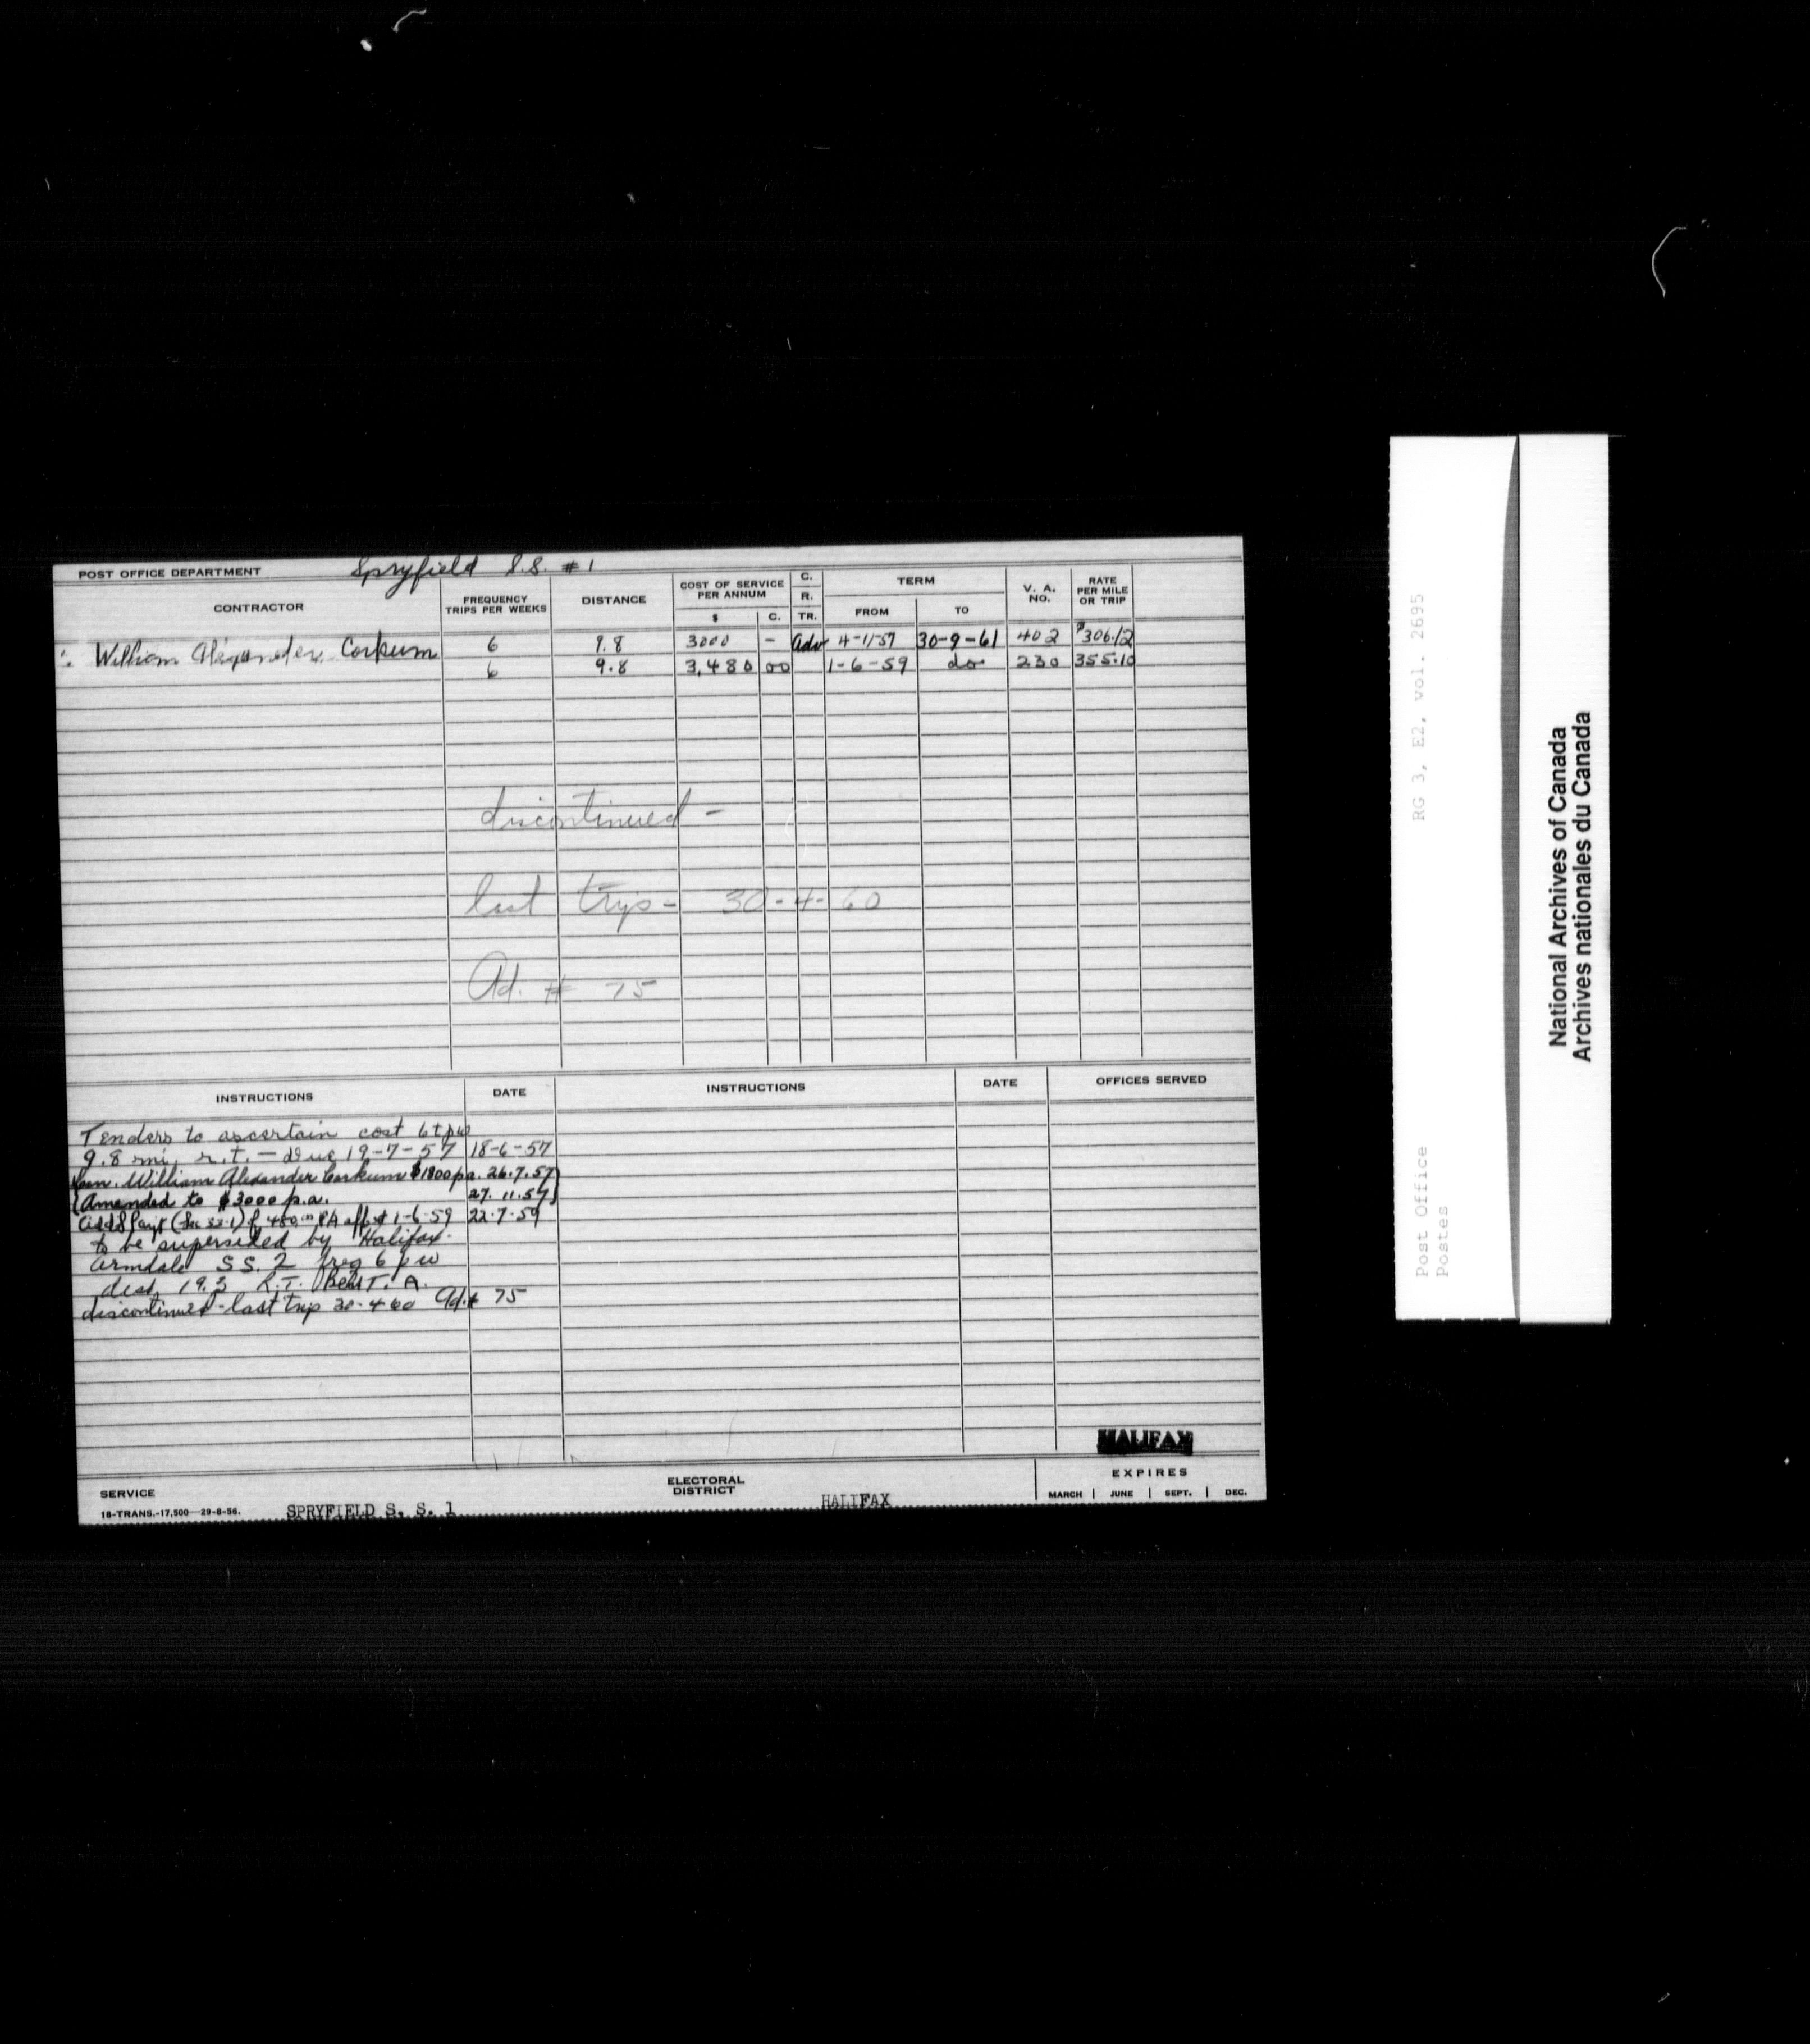 POST OFFICE DEPARTMENT Spryfield S.S. #1
CONTRACTOR FREQUENCY TRIPS PER WEEKS DISTANCE COST OF SERVICE PER ANNUM $ C. C. R. TR. TERM FROM TO V. A. NO. RATE PER MILE OR TRIP
William Alexander Corkum 6 9.8 3000 – Adv 4-11-57 30-9-61 402 $306.12
6 9.8 3,480 00 1-6-59 do 230 355.10
discontinued -
last trip - 30-4-60
Ad. # 75
INSTRUCTIONS DATE INSTRUCTIONS DATE OFFICES SERVED
Tenders to ascertain cost 6 tpw
9.8 mi. r.t. — due 19-7-57 18-6-57
William Alexander Corkum $1800 p.a. 26.7.57
(Amended to $3000 p.a. 27.11.57)
1-6-59 22-7-59
to be superseded by Halifax
Armdale SS. 2 freq 6 pw
dist. 19.3 R.T.
discontinued - last trip 30-4-60 Ad. # 75
HALIFAX
SERVICE SPRYFIELD S. S. 1 ELECTORAL DISTRICT HALIFAX EXPIRES
MARCH | JUNE | SEPT. | DEC.
18-TRANS.-17,500—29-8-56.
RG 3, E2, vol. 2695
Post Office
Postes
National Archives of Canada
Archives nationales du Canada